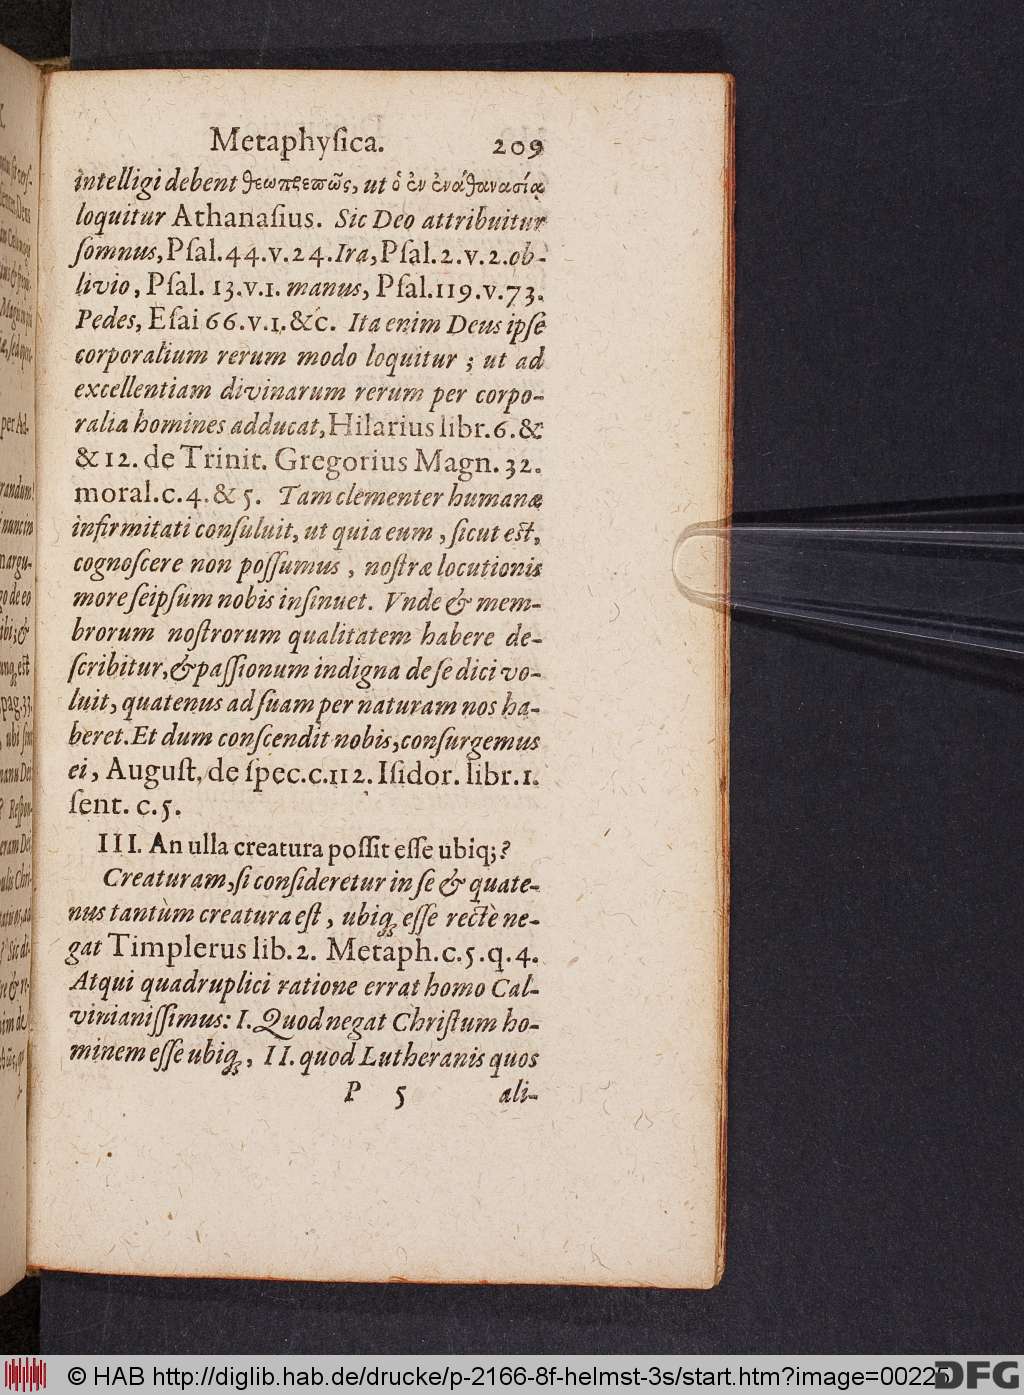 Metaphyſica. 209
intelligi debent θεωπρεπῶς, ut ὁ ἐν ἐνάθανασίᾳ
loquitur Athanaſius. Sic Deo attribuitur
ſomnus, Pſal. 44. v. 24. Ira, Pſal. 2. v. 2. ob-
livio, Pſal. 13. v. 1. manus, Pſal. 119. v. 73.
Pedes, Eſai 66. v. 1. &c. Ita enim Deus ipſe
corporalium rerum modo loquitur ; ut ad
excellentiam divinarum rerum per corpo-
ralia homines adducat, Hilarius libr. 6. &
& 12. de Trinit. Gregorius Magn. 32.
moral. c. 4. & 5. Tam clementer humanæ
infirmitati conſuluit, ut quia eum , ſicut eſt,
cognoſcere non poſſumus , noſtræ locutionis
more ſeipſum nobis inſinuet. Vnde & mem-
brorum noſtrorum qualitatem habere de-
ſcribitur, & paſſionum indigna de ſe dici vo-
luit, quatenus ad ſuam per naturam nos ha-
beret. Et dum conſcendit nobis, conſurgemus
ei , Auguſt. de ſpec. c. 112. Iſidor. libr. 1.
ſent. c. 5.
III. An ulla creatura poſſit eſſe ubiq;?
Creaturam, ſi conſideretur in ſe & quate-
nus tantùm creatura eſt , ubiq; eſſe rectè ne-
gat Timplerus lib. 2. Metaph. c. 5. q. 4.
Atqui quadruplici ratione errat homo Cal-
vinianiſſimus: I. Quod negat Chriſtum ho-
minem eſſe ubiq; , II. quod Lutheranis quos
P 5 ali-
© HAB http://diglib.hab.de/drucke/p-2166-8f-helmst-3s/start.htm?image=00225
DFG